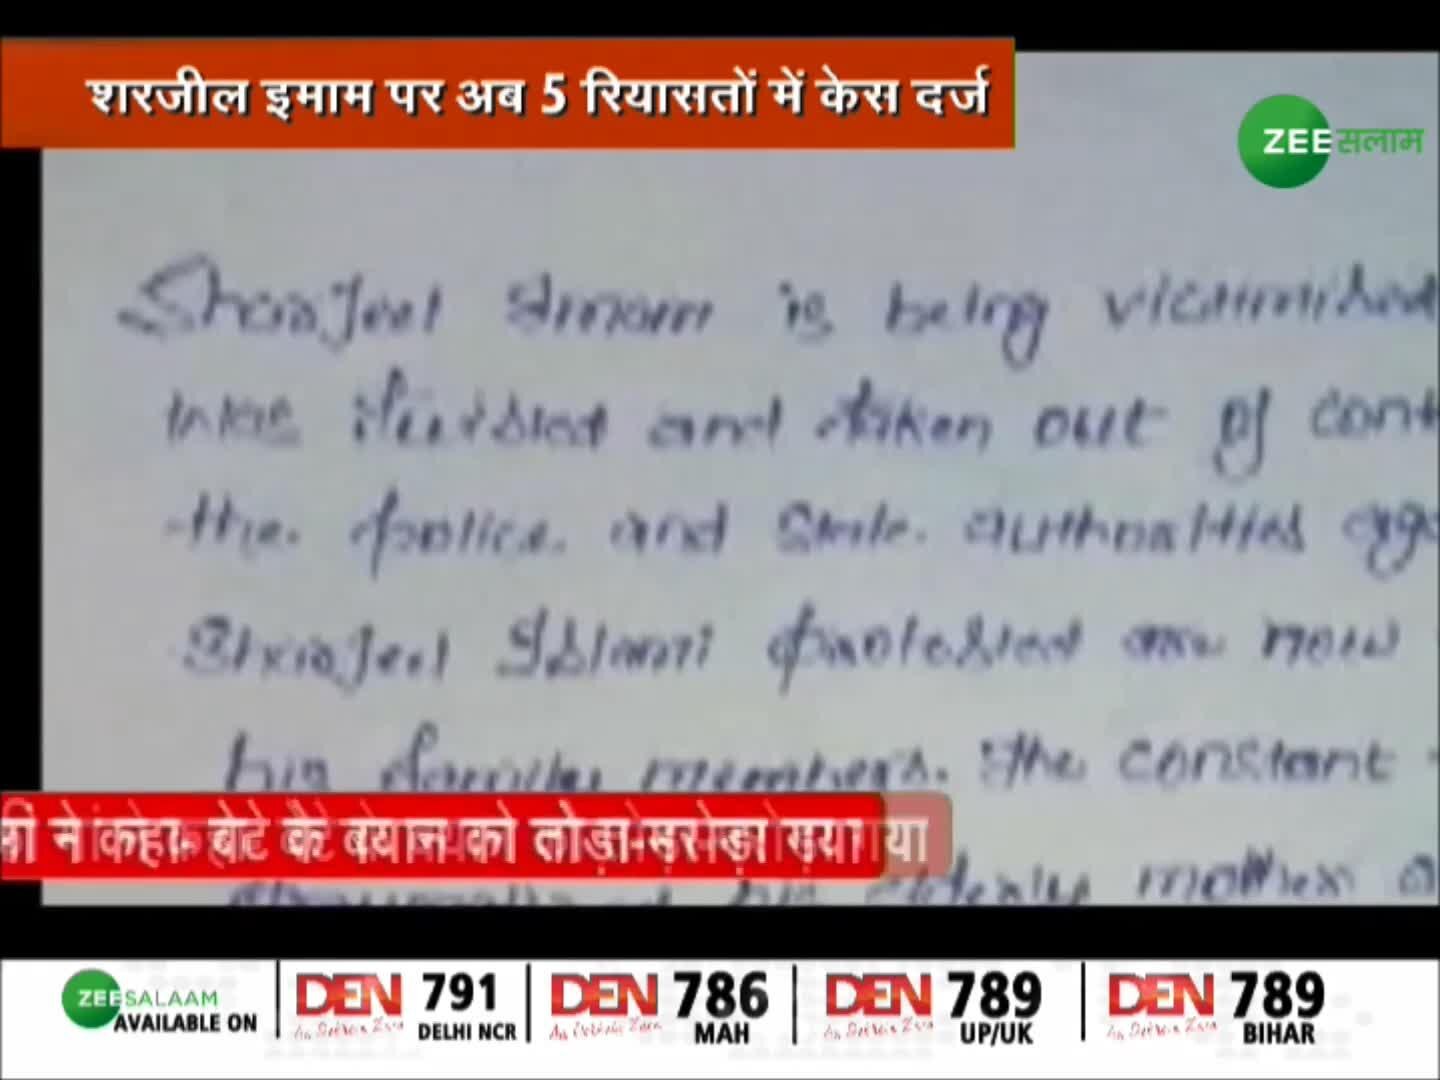 शरजील इमाम पर अब 5 रियासतों में केस दर्ज
ZEE सलाम
Sharjeel Imam is being victimised
was twisted and taken out of cont
the police and state authorities aga
Sharjeel Islami protested are now
his family members. the constant
ने कहा- बेटे के बयान को तोड़ा-मरोड़ा गया
elderly mother
ZEE SALAAM
AVAILABLE ON
DEN 791
DELHI NCR
DEN 786
MAH
DEN 789
UP/UK
DEN 789
BIHAR